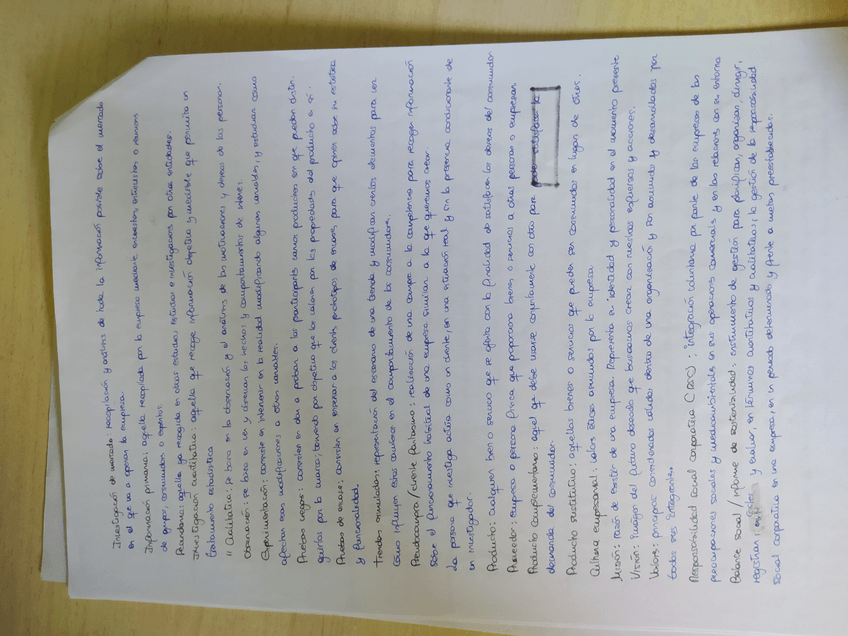 Investigación de mercado: recopilación y análisis de toda la información posible sobre el mercado
en el que va a operar la empresa.
Información primaria: aquella recopilada por la empresa mediante encuestas, entrevistas o reuniones
de grupos, consumidores o expertos.
Secundaria: aquella ya recogida en otros estudios, estudios e investigaciones por otras entidades.
Investigación cuantitativa: aquella que recoge información objetiva y medible que permita un
tratamiento estadístico
" Cualitativa: se basa en la observación y el análisis de las motivaciones y deseos de las personas.
Observación: se basa en ver y observar los hechos y comportamientos de interés.
Experimentación: consiste en intervenir en la realidad modificando algunas variables, y estudiar como
afectan esas modificaciones a otras variables.
Pruebas ciegas: consisten en dar a probar a los participantes varios productos sin que puedan distin-
guirlos por la marca, teniendo por objetivo que los valoren por las propiedades del producto en sí.
Pruebas de envase: consisten en enseñar a los clientes prototipos de envases, para que opinen sobre su estética
y funcionalidad.
Tiendas simuladas: representación del escenario de una tienda y modifican ciertos elementos para ver
cómo influyen estos cambios en el comportamiento de los consumidores.
Pseudocompra/cliente fantasma: realización de una compra a la competencia para recoger información
sobre el funcionamiento habitual de una empresa similar a la que queremos crear.
La persona que investiga actúa como un cliente, en una situación real y sin la presencia condicionante de
un investigador.
Producto: cualquier bien o servicio que se oferta con la finalidad de satisfacer los deseos del consumidor
Proveedor: empresa o persona física que proporciona bienes o servicios a otras personas o empresas
Producto complementario: aquel que debe usarse conjuntamente con otro para satisfacer la
demanda del consumidor.
Producto sustitutivo: aquellos bienes o servicios que pueden ser consumidos en lugar de otros.
Cultura empresarial: valores éticos asumidos por la empresa.
Misión: razón de existir de una empresa. Representa su identidad y personalidad en el momento presente
Visión: imagen del futuro deseado que buscamos crear con nuestros esfuerzos y acciones.
Valores: principios considerados válidos dentro de una organización y son asumidos y desarrollados por
todos sus integrantes.
Responsabilidad social corporativa (RSC): integración voluntaria por parte de las empresas de las
preocupaciones sociales y medioambientales en sus operaciones comerciales y en las relaciones con su entorno
Balance social / informe de sostenibilidad: instrumento de gestión para planificar, organizar, dirigir,
registrar, y evaluar, en términos cuantitativos y cualitativos, la gestión de la responsabilidad
social corporativa en una empresa, en un periodo determinado y frente a metas preestablecidas.